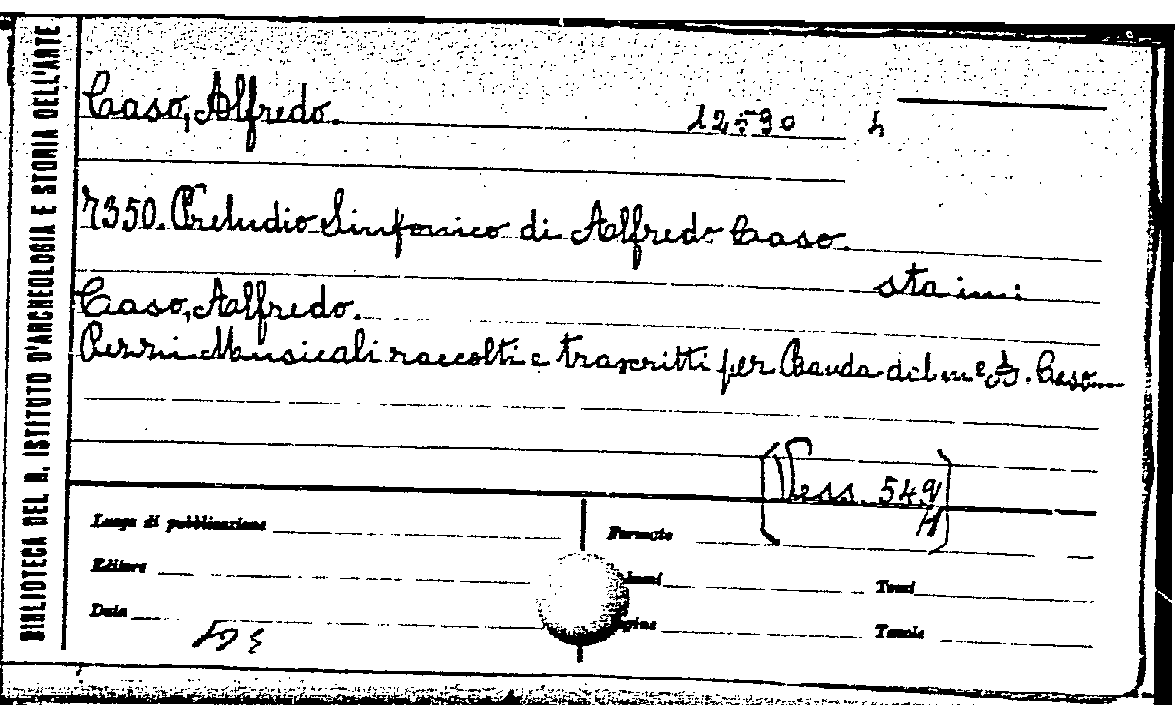 BIBLIOTECA DEL R. ISTITUTO D'ARCHEOLOGIA E STORIA DELL'ARTE
Caso, Alfredo.
h
7350. Preludio Sinfonico di Alfredo Caso.
sta in:
Caso, Alfredo.
Pezzi Musicali raccolti e trascritti per Banda del m° A. Caso
[Vess. 549
H]
Luogo di pubblicazione
Formato
Editore
Tomi
Data
Tavole